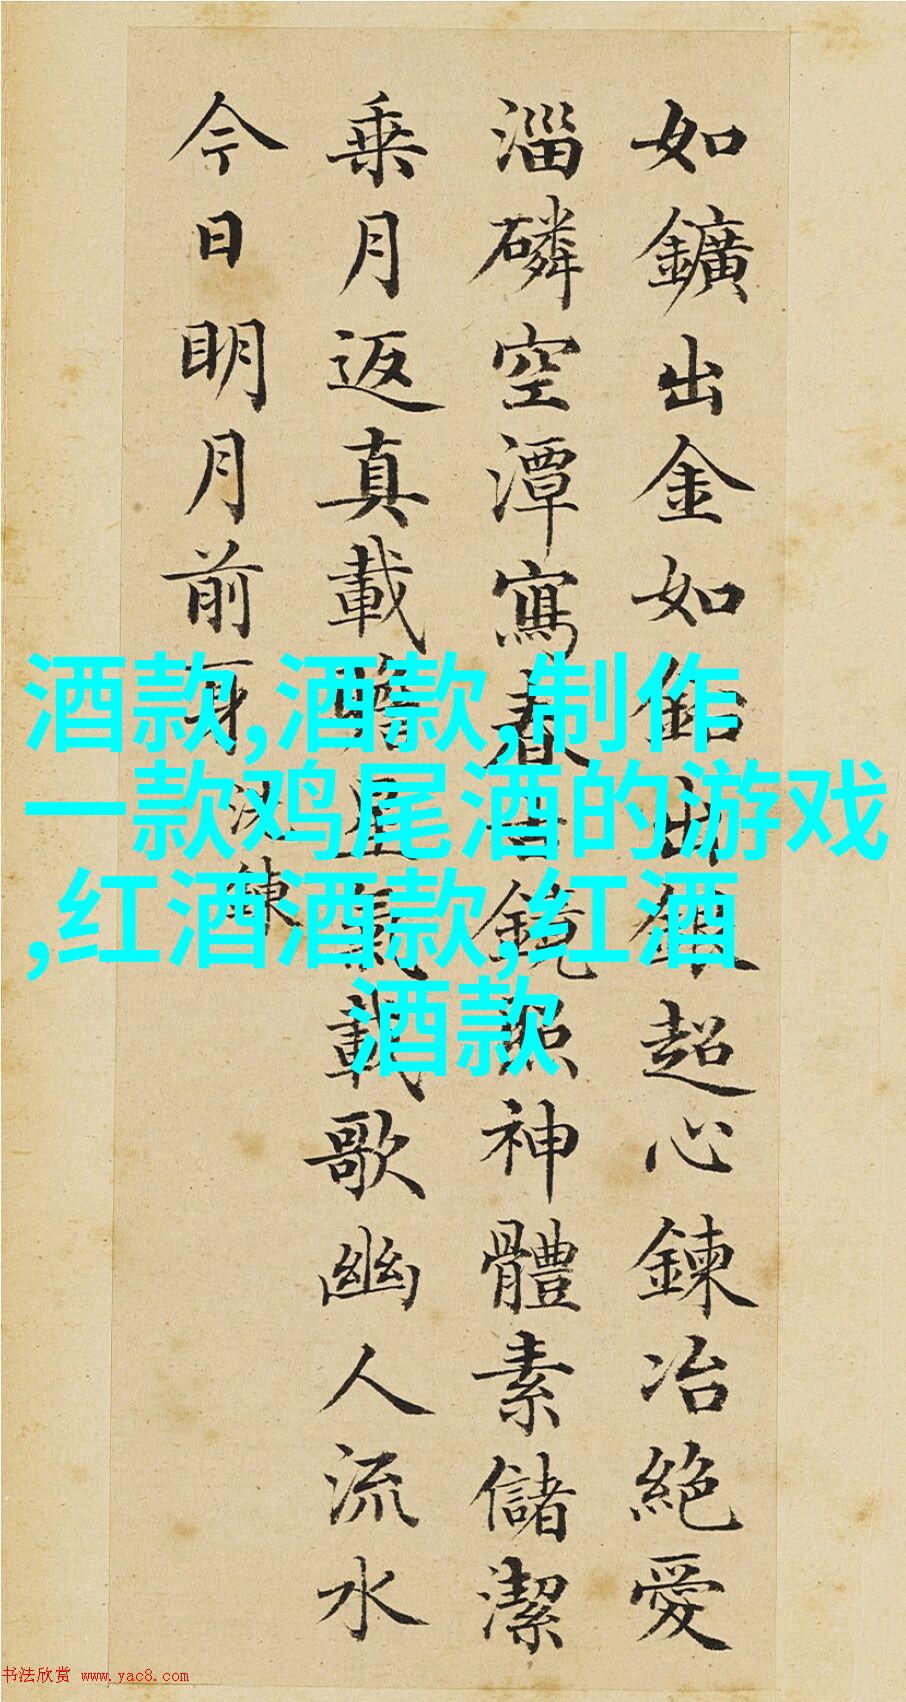 如鑛出金如鉛出銀超心鍊冶絕愛
淄磷空潭寫春古鏡照神體素儲潔
乘月返真載瞻星氣載歌幽人流水
今日明月前身 洗鍊
酒款,酒款,制作
一款鸡尾酒的游戏
,红酒酒款,红酒
酒款
书法欣赏 www.yac8.com